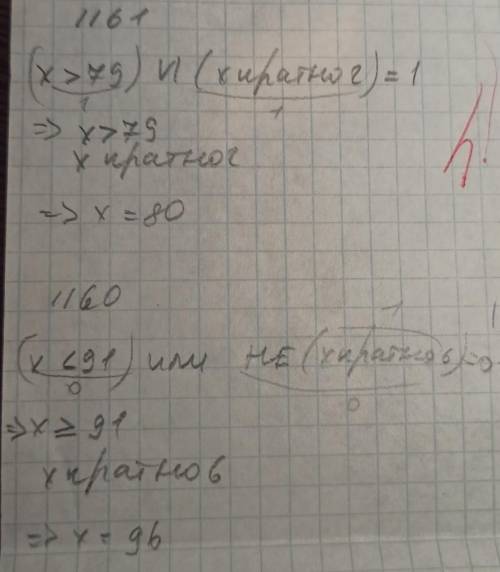 1161
(x > 79) И (x кратно 2) = 1
1 1
=> x > 79
x кратно 2
=> x = 80
h!
1160
1
(x < 91) или НЕ (x кратно 6) = 0
0 0
=> x ≥ 91
x кратно 6
=> x = 96